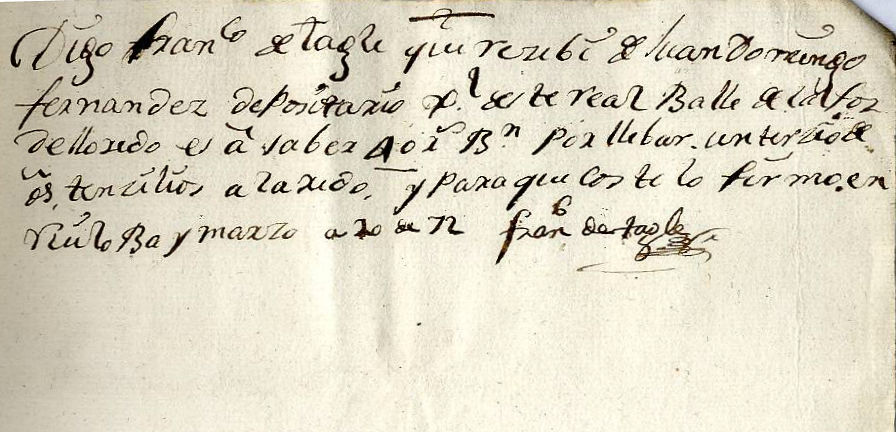 Digo Franco de Tagle que rezibi de Juan Domingo
fernandez depositario Rl de este real Balle de la foz
de lloredo es a saber 40 rs Bn por llebar un terzio de
utensilios a laredo, y para que Coste lo firmo en
Ruilo Ba y marzo a 20 de
Franco de tagle